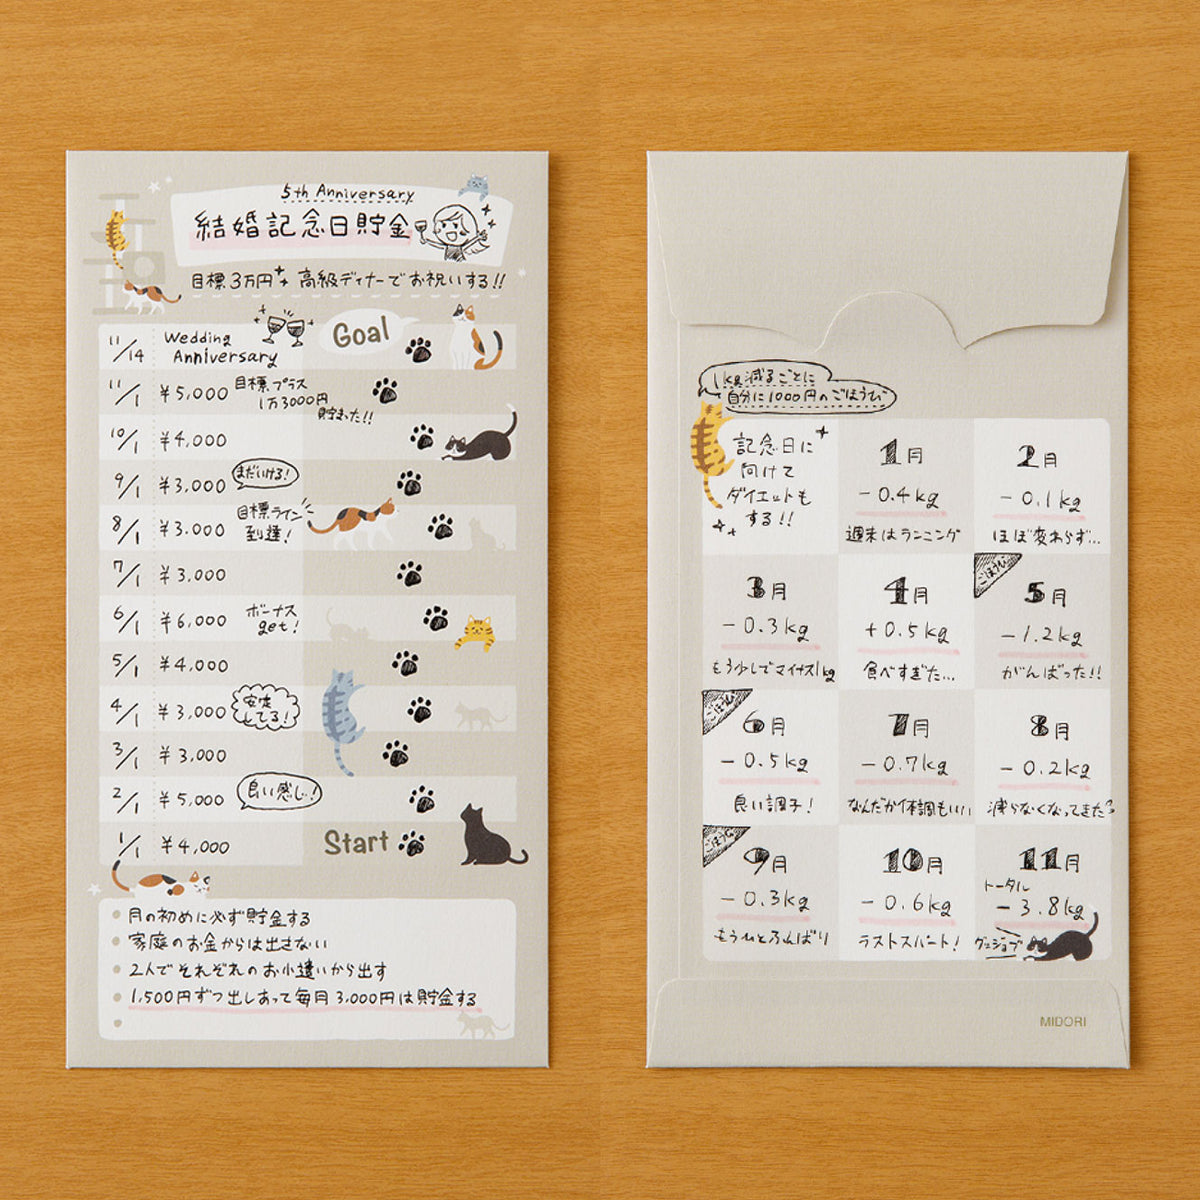 5th Anniversary
結婚記念日貯金
目標3万円 高級ディナーでお祝いする!!
11/14 Wedding Anniversary Goal
11/1 ¥5,000 目標プラス
1万3000円
貯まった!!
10/1 ¥4,000
9/1 ¥3,000 まだいける!
8/1 ¥3,000 目標ライン
到達!
7/1 ¥3,000
6/1 ¥6,000 ボーナス
get!
5/1 ¥4,000
4/1 ¥3,000 安定
してる!
3/1 ¥3,000
2/1 ¥5,000 良い感じ!
1/1 ¥4,000 Start
月の初めに必ず貯金する
家庭のお金からは出さない
2人でそれぞれのお小遣いから出す
1,500円ずつ出しあって毎月3,000円は貯金する
1kg減るごとに
自分に1000円のごほうび
記念日に
向けて
ダイエットも
する!!
1月
-0.4kg
週末はランニング
2月
-0.1kg
ほぼ変わらず…
3月
-0.3kg
もう少しでマイナス1kg
4月
+0.5kg
食べすぎた…
ごほうび
5月
-1.2kg
がんばった!!
ごほうび
6月
-0.5kg
良い調子!
7月
-0.7kg
なんだか体調もいい
8月
-0.2kg
減らなくなってきた?
ごほうび
9月
-0.3kg
もうひとふんばり
10月
-0.6kg
ラストスパート!
11月
トータル
-3.8kg
グッジョブ
MIDORI